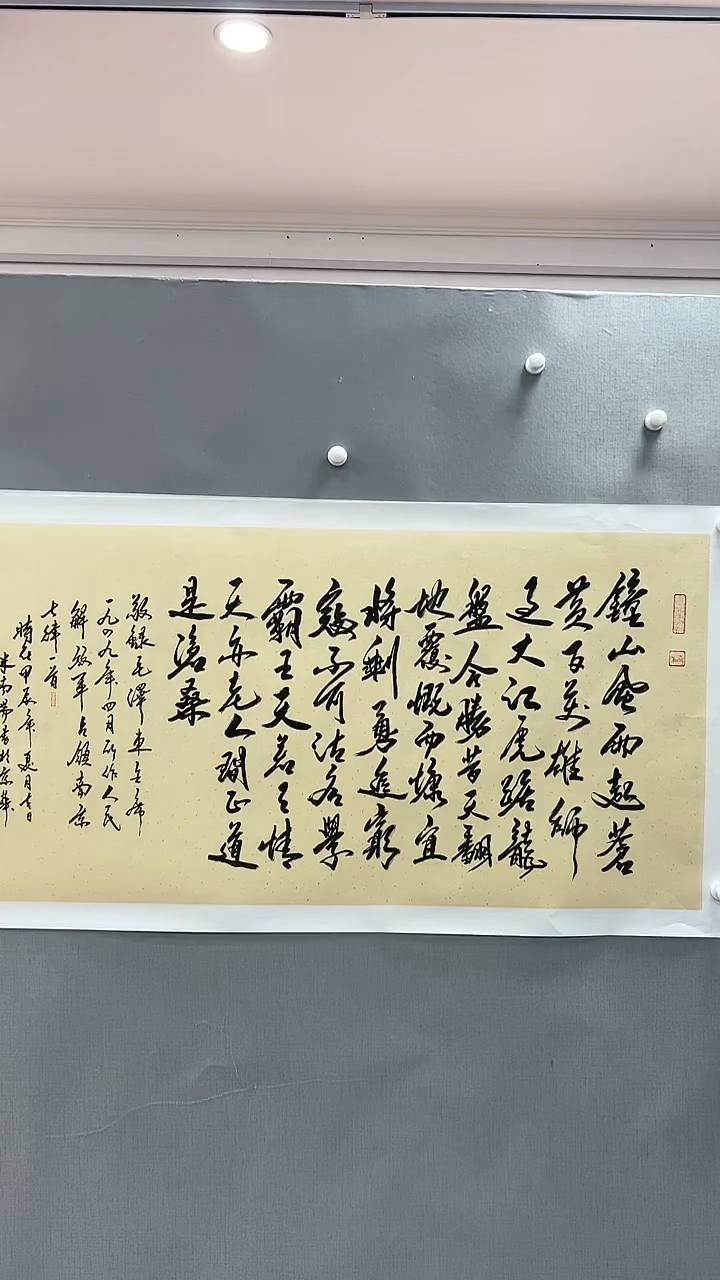 鐘山風雨起蒼
黃百萬雄師
過大江虎踞龍
盤今勝昔天翻
地覆慨而慷宜
將剩勇追窮
寇不可沽名學
霸王天若有情
天亦老人間正道
是滄桑
敬錄毛澤東主席
一九四九年四月所作人民
解放軍占領南京
七律一首
時在甲辰年夏月吉日
南書於京華